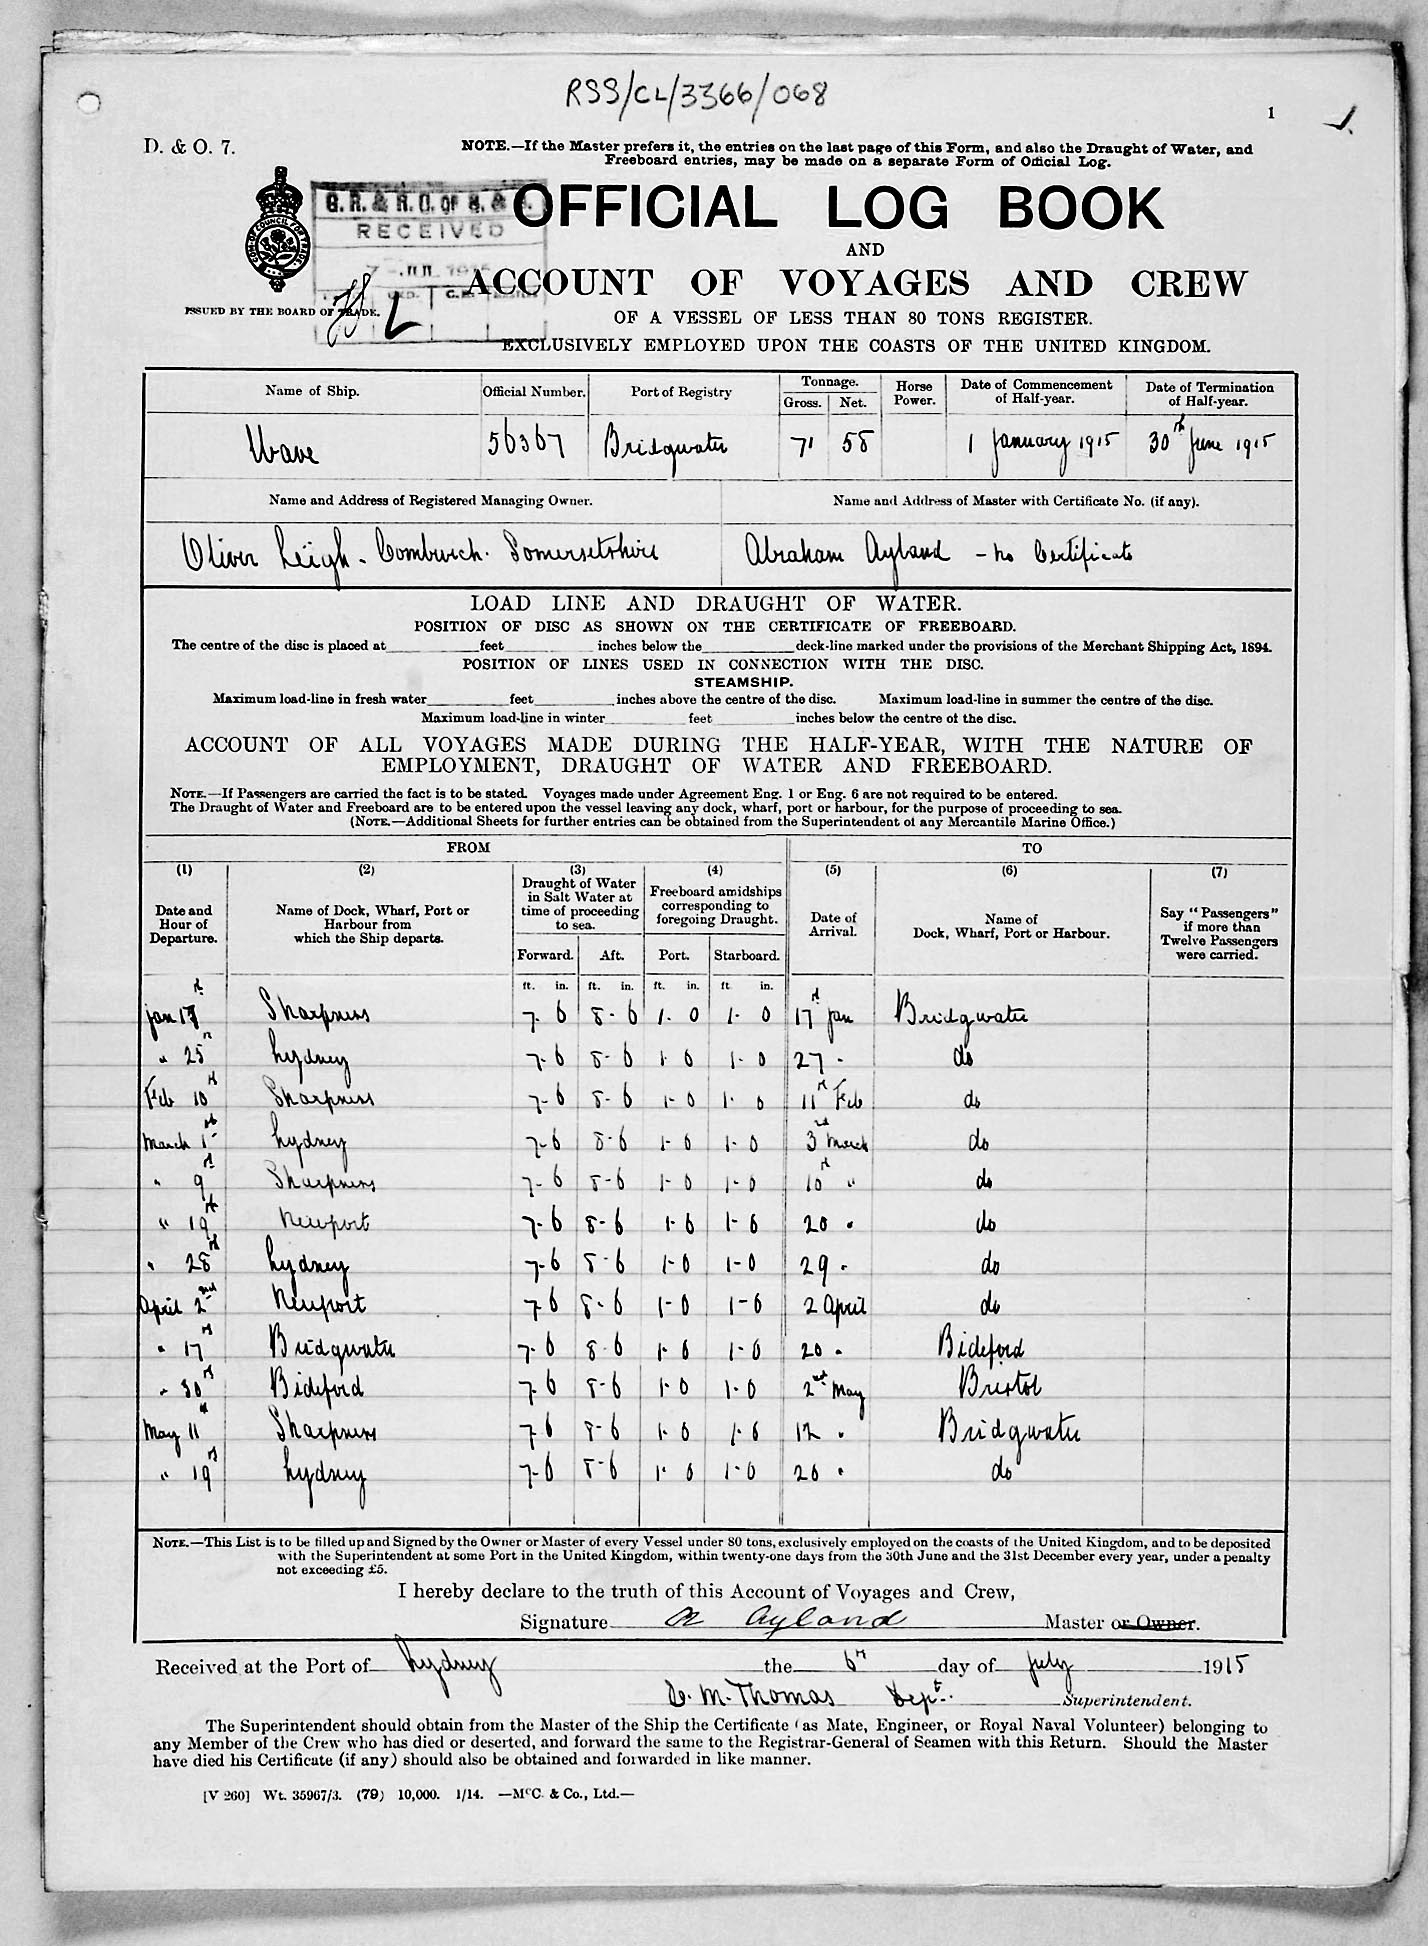 RSS/CL/3366/068
1
D. & O. 7.
NOTE.—If the Master prefers it, the entries on the last page of this Form, and also the Draught of Water, and
Freeboard entries, may be made on a separate Form of Official Log.
G.R. & R.O. OF S. & S.
RECEIVED
OFFICIAL LOG BOOK
AND
ACCOUNT OF VOYAGES AND CREW
ISSUED BY THE BOARD OF TRADE.
OF A VESSEL OF LESS THAN 80 TONS REGISTER.
EXCLUSIVELY EMPLOYED UPON THE COASTS OF THE UNITED KINGDOM.
Name of Ship. Official Number. Port of Registry Tonnage. Gross. Net. Horse Power. Date of Commencement of Half-year. Date of Termination of Half-year.
Wave 56367 Bridgwater 71 58 1 January 1915 30th June 1915
Name and Address of Registered Managing Owner. Name and Address of Master with Certificate No. (if any).
Oliver Leigh - Combwich. Somersetshire Abraham Ayland - no Certificate
LOAD LINE AND DRAUGHT OF WATER.
POSITION OF DISC AS SHOWN ON THE CERTIFICATE OF FREEBOARD.
The centre of the disc is placed at feet inches below the deck-line marked under the provisions of the Merchant Shipping Act, 1894.
POSITION OF LINES USED IN CONNECTION WITH THE DISC.
STEAMSHIP.
Maximum load-line in fresh water feet inches above the centre of the disc. Maximum load-line in summer the centre of the disc.
Maximum load-line in winter feet inches below the centre of the disc.
ACCOUNT OF ALL VOYAGES MADE DURING THE HALF-YEAR, WITH THE NATURE OF
EMPLOYMENT, DRAUGHT OF WATER AND FREEBOARD.
NOTE.—If Passengers are carried the fact is to be stated. Voyages made under Agreement Eng. 1 or Eng. 6 are not required to be entered.
The Draught of Water and Freeboard are to be entered upon the vessel leaving any dock, wharf, port or harbour, for the purpose of proceeding to sea.
(NOTE.—Additional Sheets for further entries can be obtained from the Superintendent of any Mercantile Marine Office.)
FROM TO
(1) (2) (3) (4) (5) (6) (7)
Date and Hour of Departure. Name of Dock, Wharf, Port or Harbour from which the Ship departs. Draught of Water in Salt Water at time of proceeding to sea. Freeboard amidships corresponding to foregoing Draught. Date of Arrival. Name of Dock, Wharf, Port or Harbour. Say "Passengers" if more than Twelve Passengers were carried.
Forward. Aft. Port. Starboard.
ft. in. ft. in. ft. in. ft. in.
Jan 17th Sharpness 7-6 8-6 1-0 1-0 17th Jan Bridgwater
" 25th Lydney 7-6 8-6 1-0 1-0 27 " do
Feb 10th Sharpness 7-6 8-6 1-0 1-0 11th Feb do
March 1st Lydney 7-6 8-6 1-0 1-0 3rd March do
" 9th Sharpness 7-6 8-6 1-0 1-0 10th " do
" 19th Newport 7-6 8-6 1-6 1-6 20 " do
" 28th Lydney 7-6 8-6 1-0 1-0 29 " do
April 2nd Newport 7-6 8-6 1-0 1-0 2 April do
" 17th Bridgwater 7-6 8-6 1-0 1-0 20 " Bideford
" 30th Bideford 7-6 8-6 1-0 1-0 2nd May Bristol
May 11th Sharpness 7-6 8-6 1-0 1-0 12 " Bridgwater
" 19th Lydney 7-6 8-6 1-0 1-0 20 " do
NOTE.—This List is to be filled up and Signed by the Owner or Master of every Vessel under 80 tons, exclusively employed on the coasts of the United Kingdom, and to be deposited
with the Superintendent at some Port in the United Kingdom, within twenty-one days from the 30th June and the 31st December every year, under a penalty
not exceeding £5.
I hereby declare to the truth of this Account of Voyages and Crew,
Signature A Ayland Master or Owner.
Received at the Port of Lydney the 6th day of July 1915
C. M. Thomas Dept. Superintendent.
The Superintendent should obtain from the Master of the Ship the Certificate (as Mate, Engineer, or Royal Naval Volunteer) belonging to
any Member of the Crew who has died or deserted, and forward the same to the Registrar-General of Seamen with this Return. Should the Master
have died his Certificate (if any) should also be obtained and forwarded in like manner.
[V 260] Wt. 35967/3. (79) 10,000. 1/14. —McC. & Co., Ltd.—